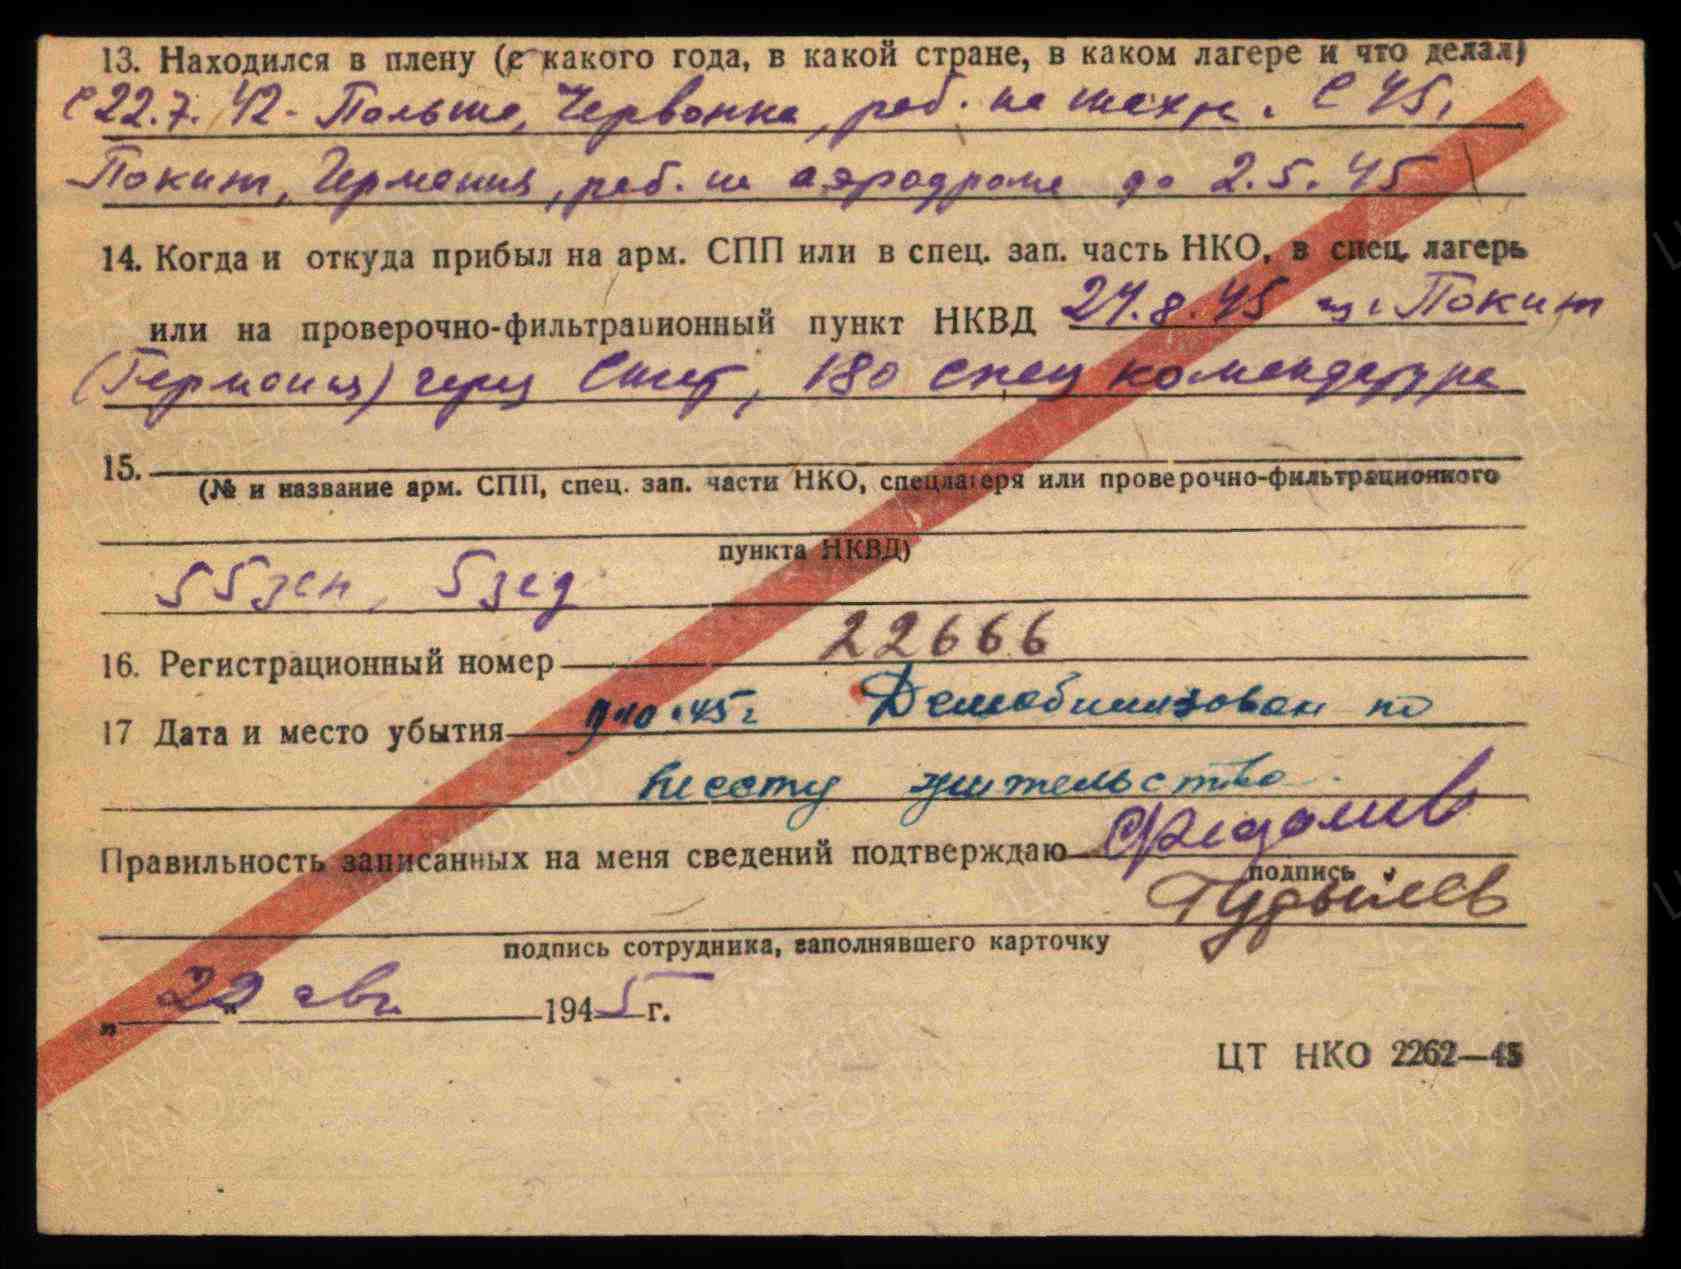 13. Находился в плену (с какого года, в какой стране, в каком лагере и что делал)
с 22.7.42 - Польша, Червонка, раб. на шахте. С 45г
Покит, Германия, раб. на аэродроме до 2.5.45
14. Когда и откуда прибыл на арм. СПП или в спец. зап. часть НКО, в спец. лагерь
или на проверочно-фильтрационный пункт НКВД 24.8.45 из г. Покит
(Германия) через 180 спец комендатура
15.
(№ и название арм. СПП, спец. зап. части НКО, спецлагеря или проверочно-фильтрационного
пункта НКВД)
55 зсп, 5 зсд
16. Регистрационный номер 22666
17 Дата и место убытия 9.10.45г Демобилизован по
месту жительства.
Правильность записанных на меня сведений подтверждаю
подпись
подпись сотрудника, заполнявшего карточку
„22“ авг. 1945 г.
ЦТ НКО 2262—45
ПАМЯТЬ НАРОДА